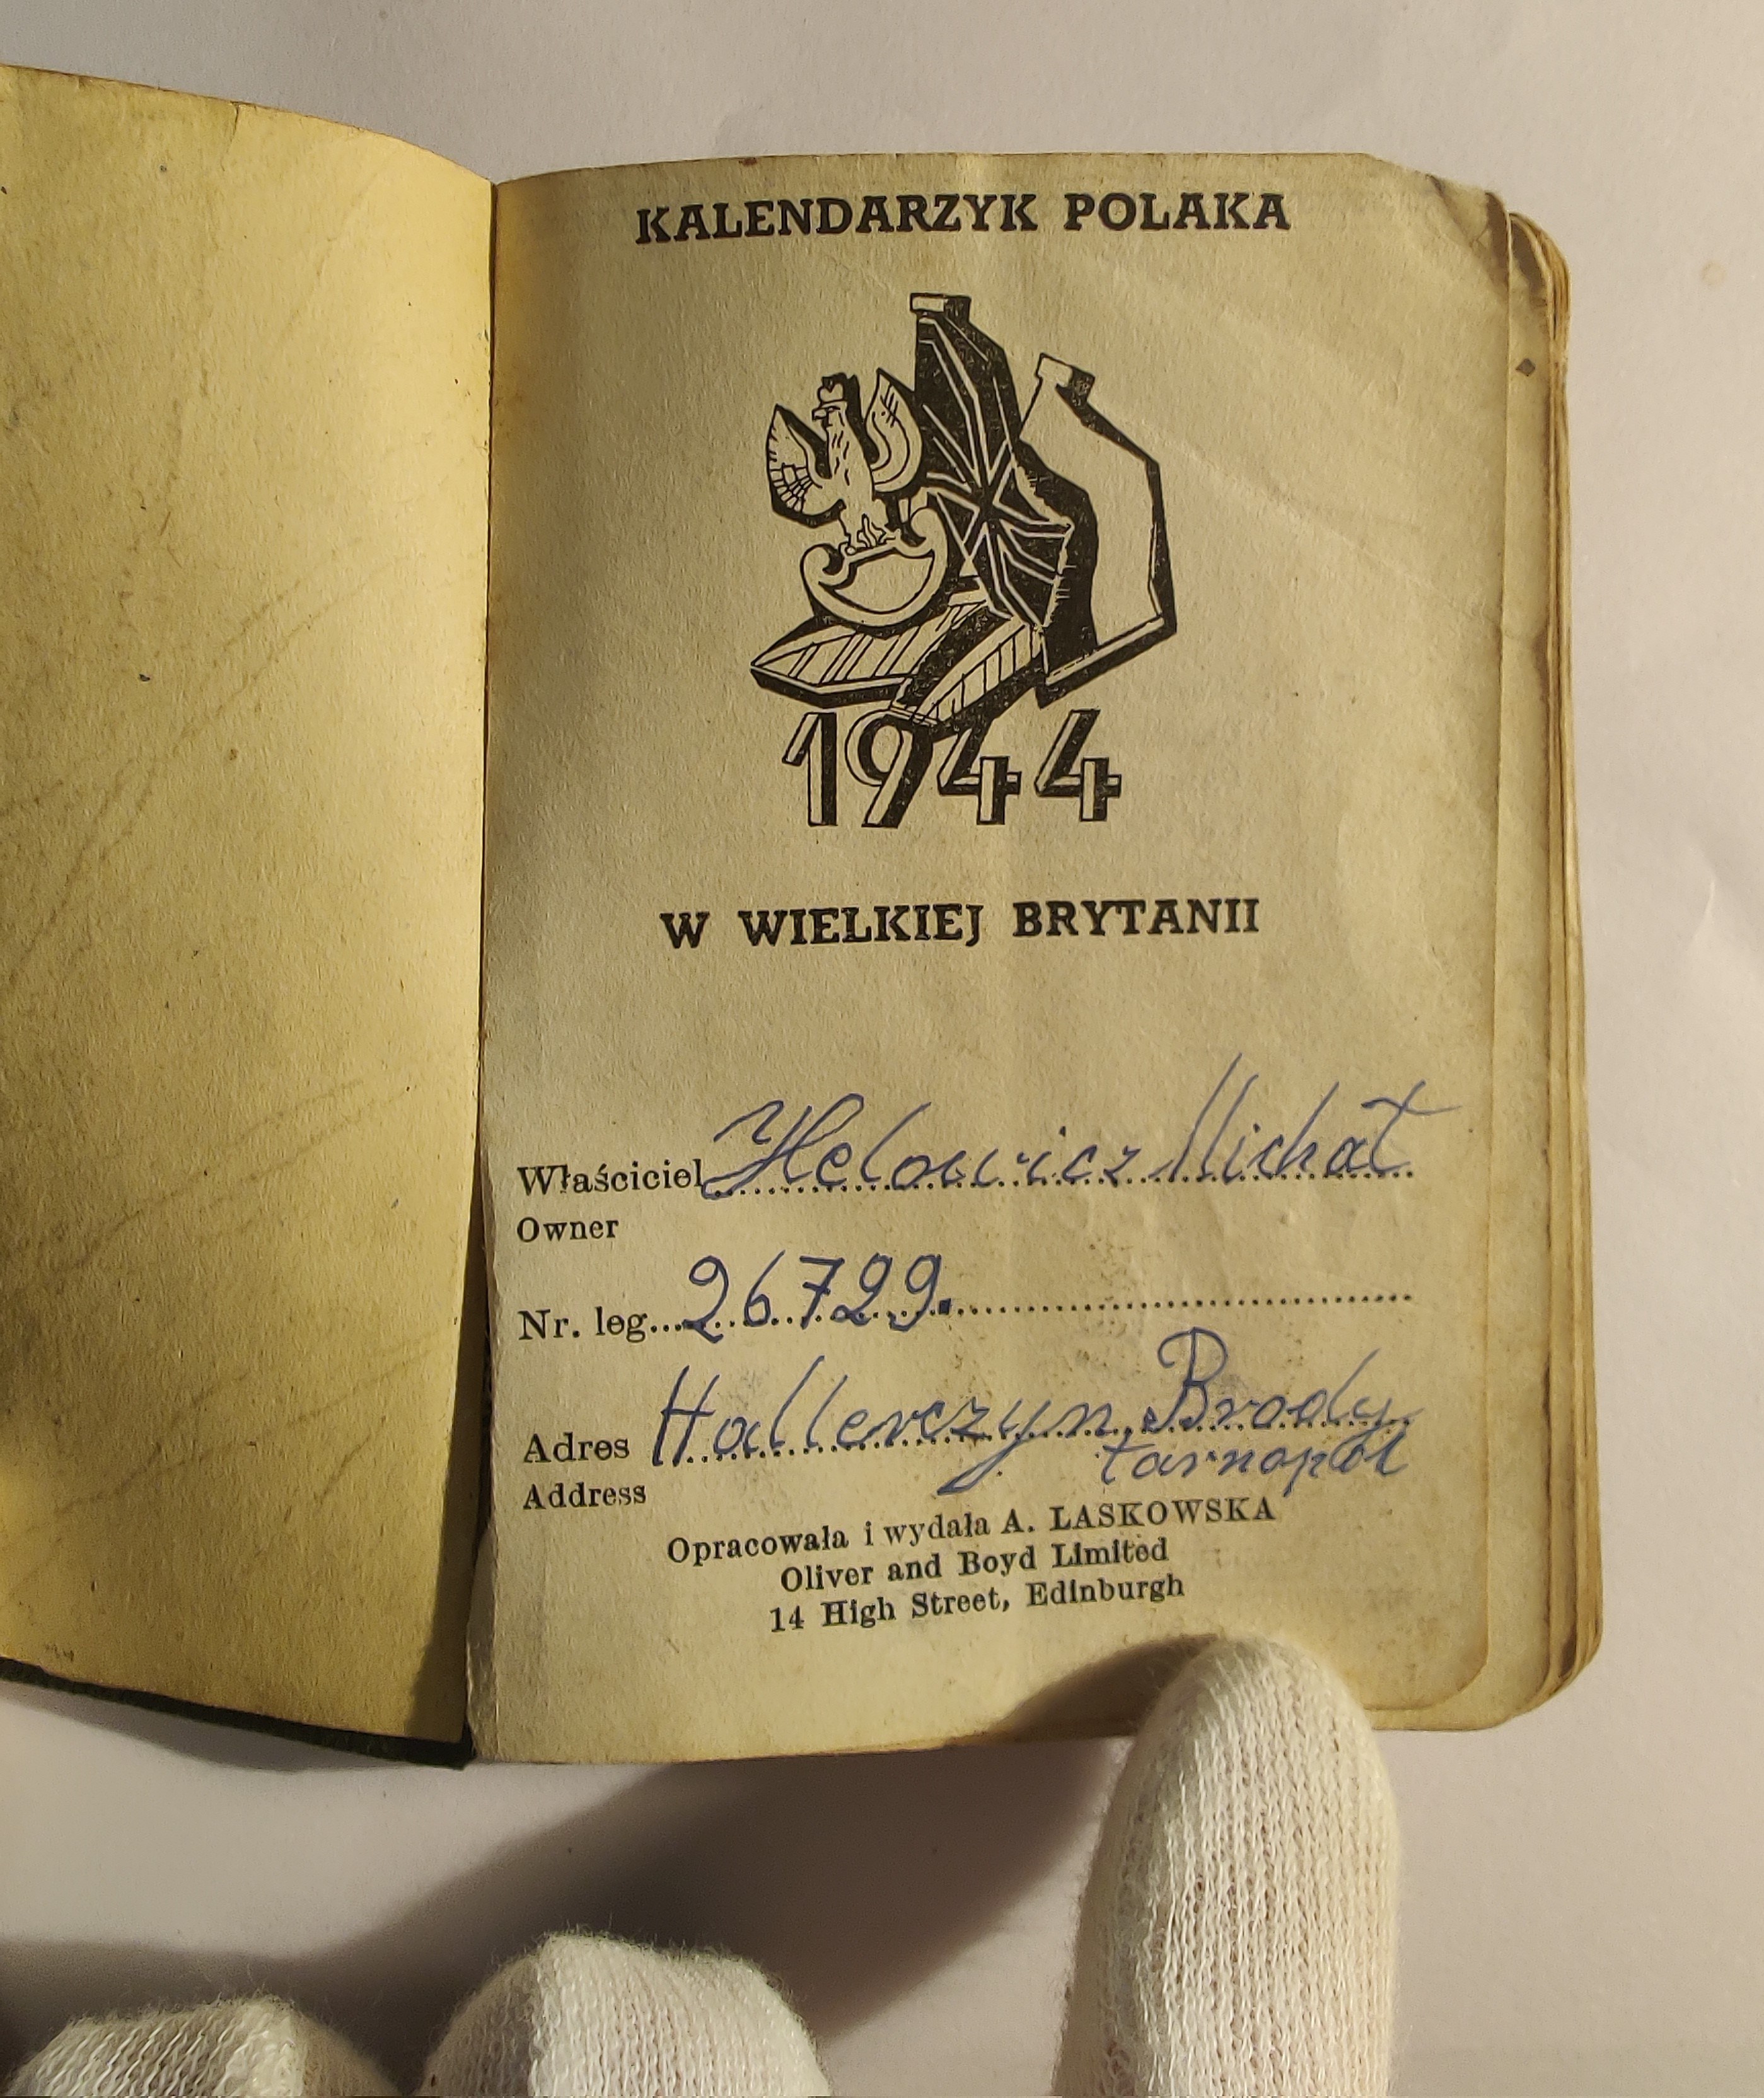 KALENDARZYK POLAKA
1944
W WIELKIEJ BRYTANII
Właściciel Helowicz Michał
Owner
Nr. leg. 26729.
Adres Hallerczyn, Brody
tarnopol
Address
Opracowała i wydała A. LASKOWSKA
Oliver and Boyd Limited
14 High Street, Edinburgh